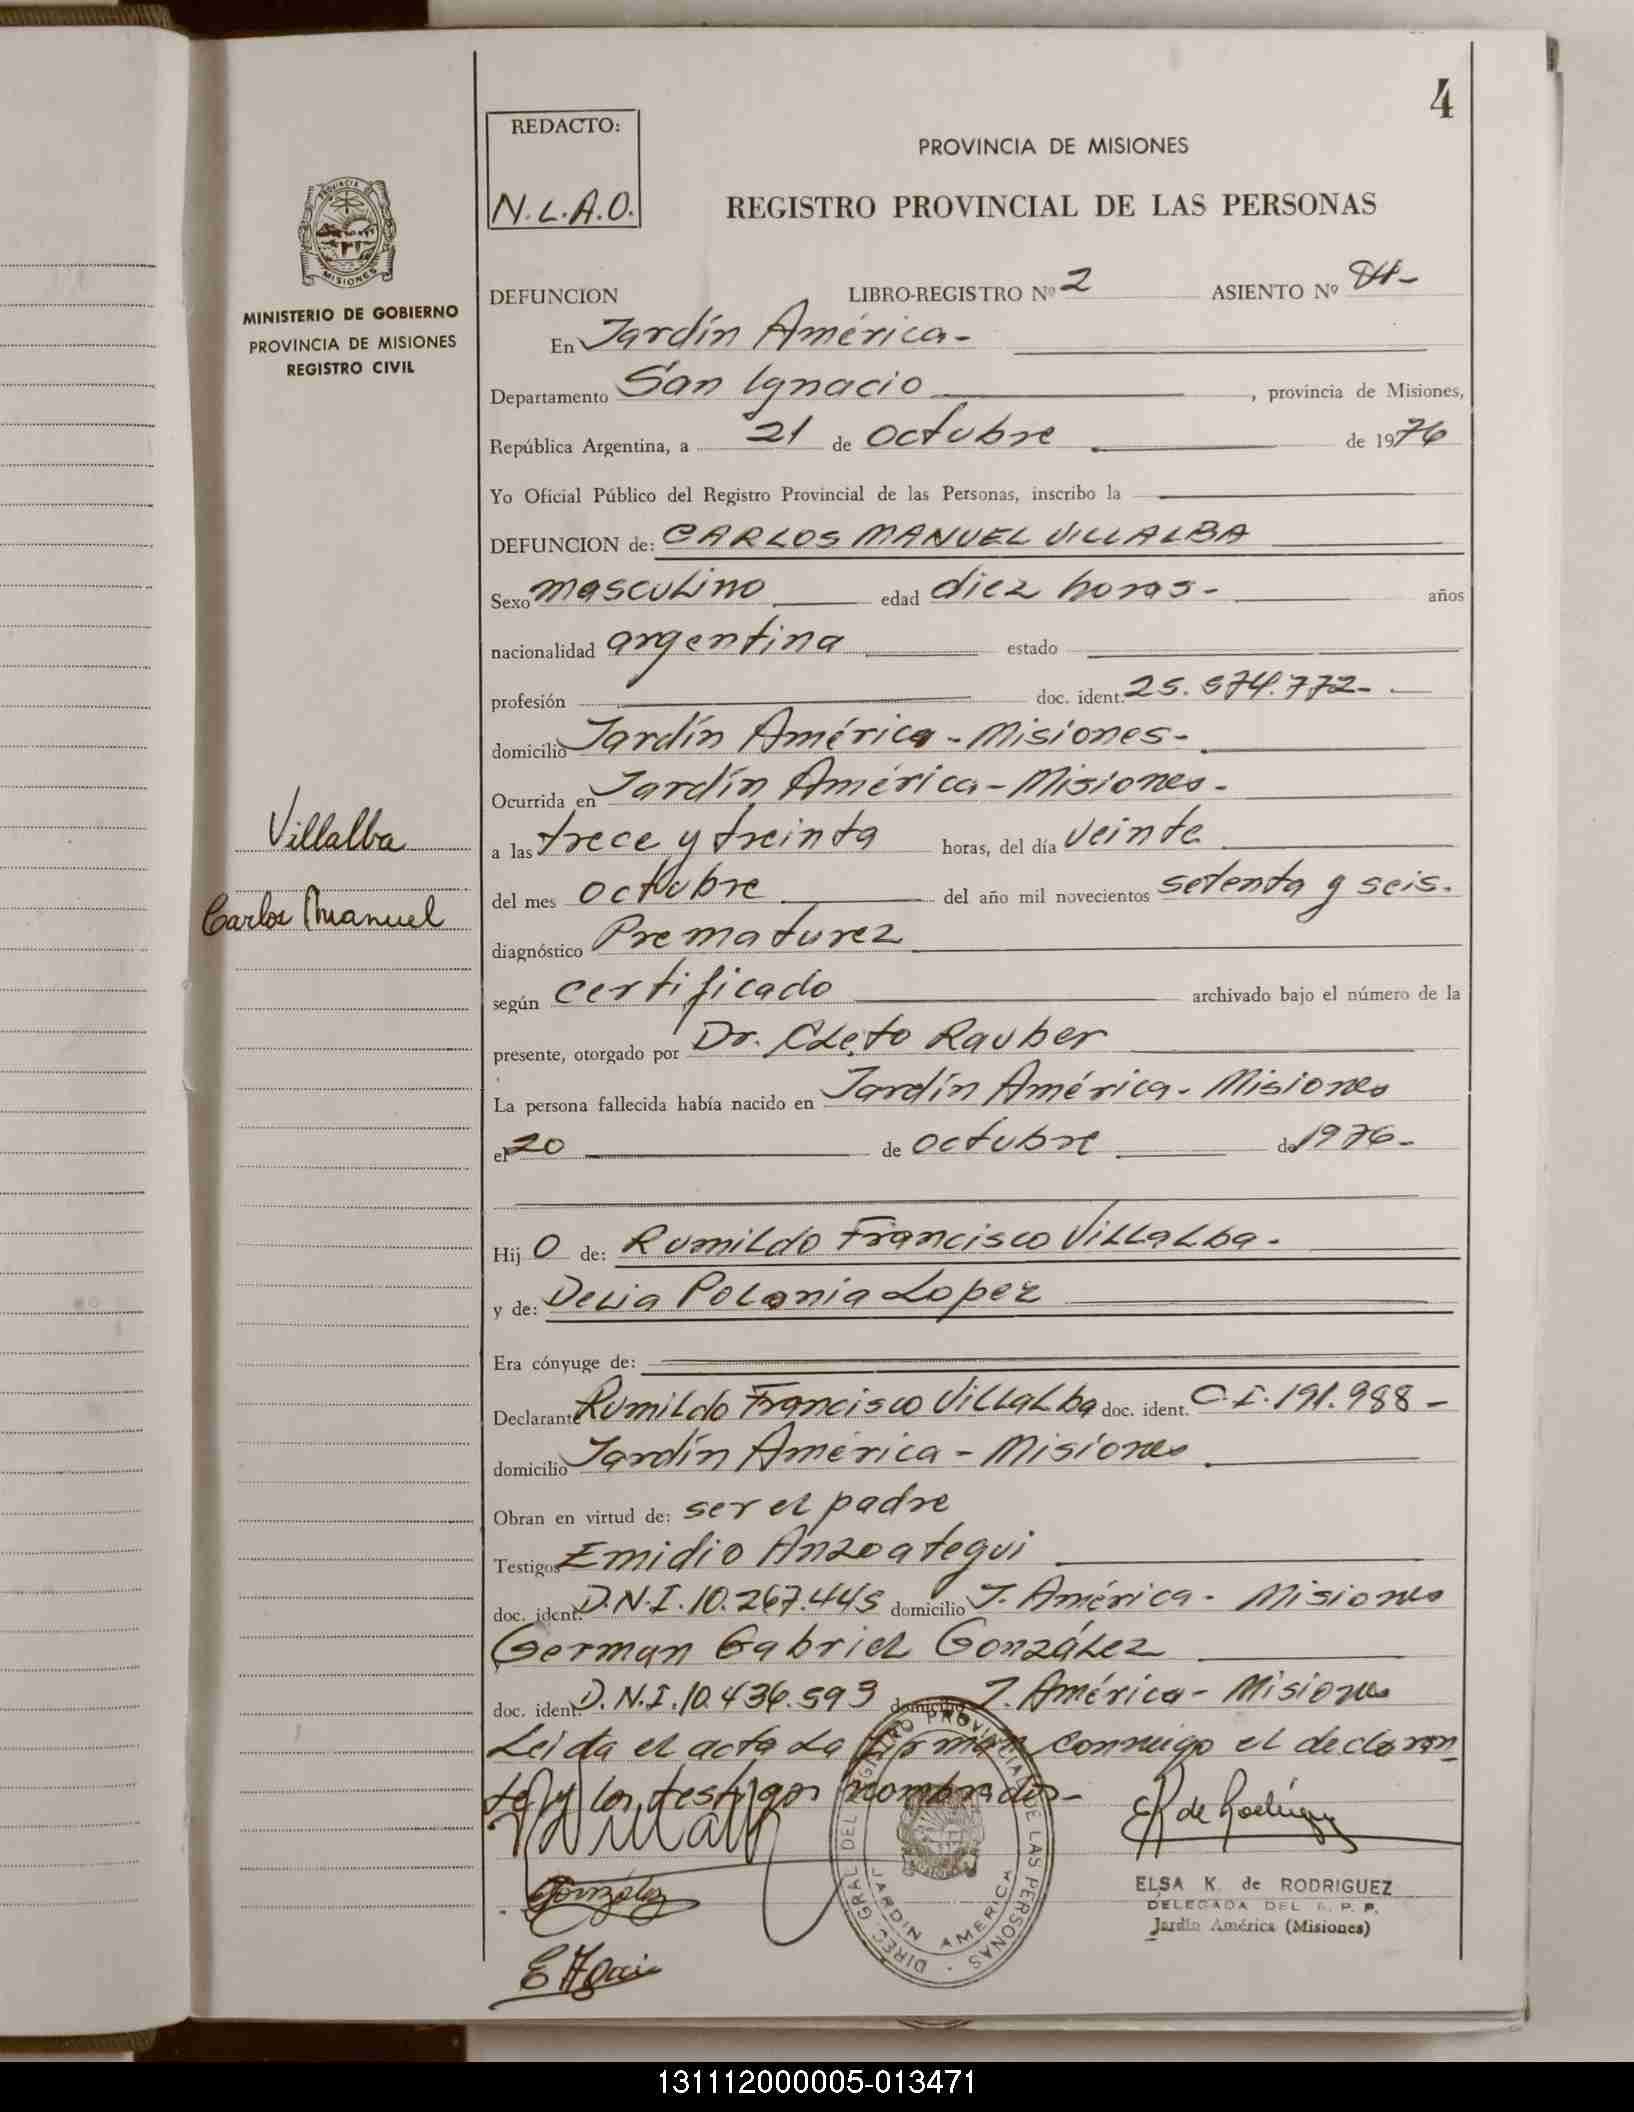 4
REDACTO:
N.L.A.O.
PROVINCIA DE MISIONES
REGISTRO PROVINCIAL DE LAS PERSONAS
PROVINCIA DE
MISIONES
MINISTERIO DE GOBIERNO
PROVINCIA DE MISIONES
REGISTRO CIVIL
DEFUNCION LIBRO-REGISTRO Nº 2 ASIENTO Nº
En Jardín América-
Departamento San Ignacio, provincia de Misiones,
República Argentina, a 21 de octubre de 1976
Yo Oficial Público del Registro Provincial de las Personas, inscribo la
DEFUNCION de: CARLOS MANUEL VILLALBA
Sexo masculino edad diez horas- años
nacionalidad argentina estado
profesión doc. ident. 25.574.772-
domicilio Jardín América-Misiones-
Ocurrida en Jardín América-Misiones-
Villalba
a las trece y treinta horas, del día veinte
Carlos Manuel
del mes octubre del año mil novecientos setenta y seis.
diagnóstico Prematurez
según certificado archivado bajo el número de la
presente, otorgado por Dr. Cleto Rauber
La persona fallecida había nacido en Jardín América-Misiones
el 20 de octubre de 1976-
Hij o de: Rumildo Francisco Villalba-
y de: Delia Polonia Lopez
Era cónyuge de:
Declarante Rumildo Francisco Villalba doc. ident. C.I.191.988-
domicilio Jardín América-Misiones
Obran en virtud de: ser el padre
Testigos Emidio Anzoategui
doc. ident. D.N.I.10.267.445 domicilio J. América-Misiones
German Gabriel González
doc. ident. D.N.I.10.436.593 domicilio J. América-Misiones
Leida el acta la firman conmigo el declaran
te y los testigos nombrados-
Villalb
E K de Rodriguez
González
DIREC. GRAL DEL REGISTRO PROVINCIAL DE LAS PERSONAS
JARDIN AMERICA
ELSA K. de RODRIGUEZ
DELEGADA DEL R. P. P.
Jardín América (Misiones)
131112000005-013471